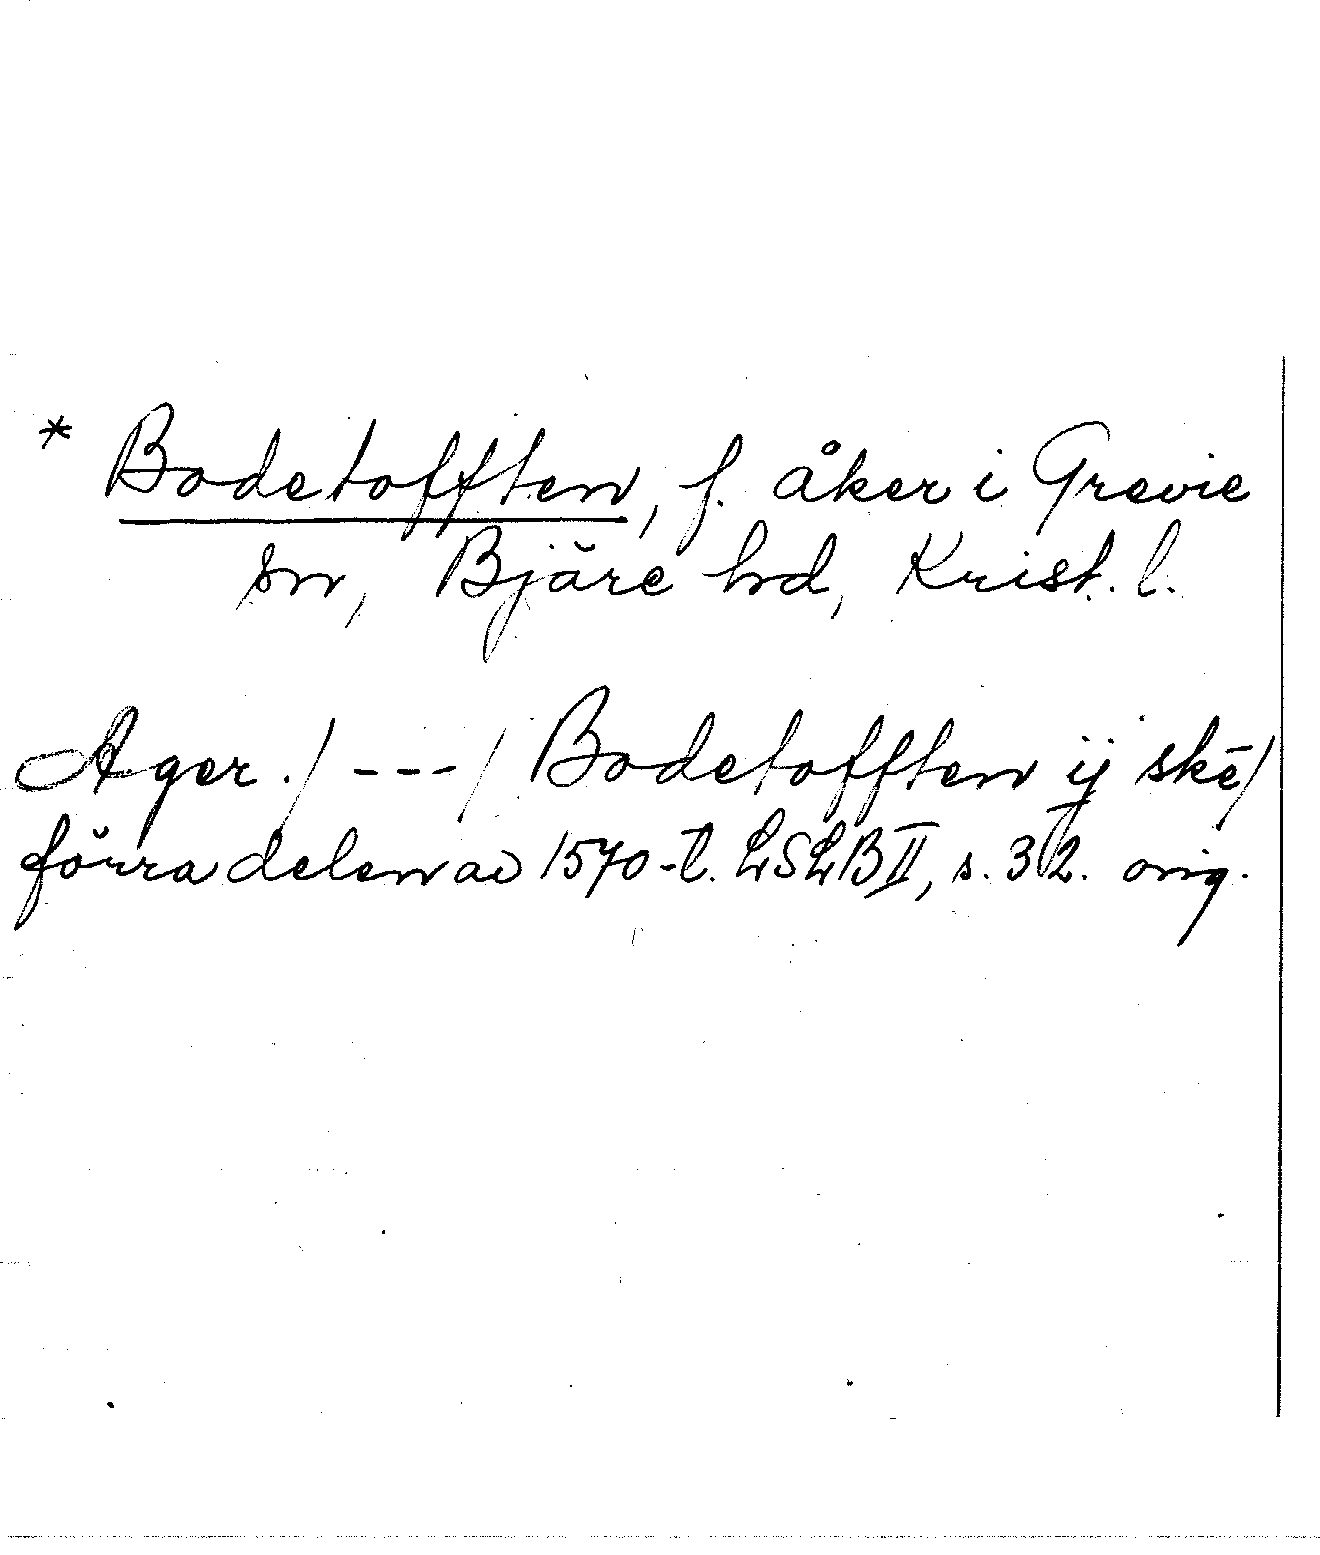 * Bodetofften, f. åker i Grevie
sn, Bjäre hd, Krist. l.
Ager. / --- / Bodetofften ij skē /
förra delen av 1570-t. LSLB II, s. 32. orig.